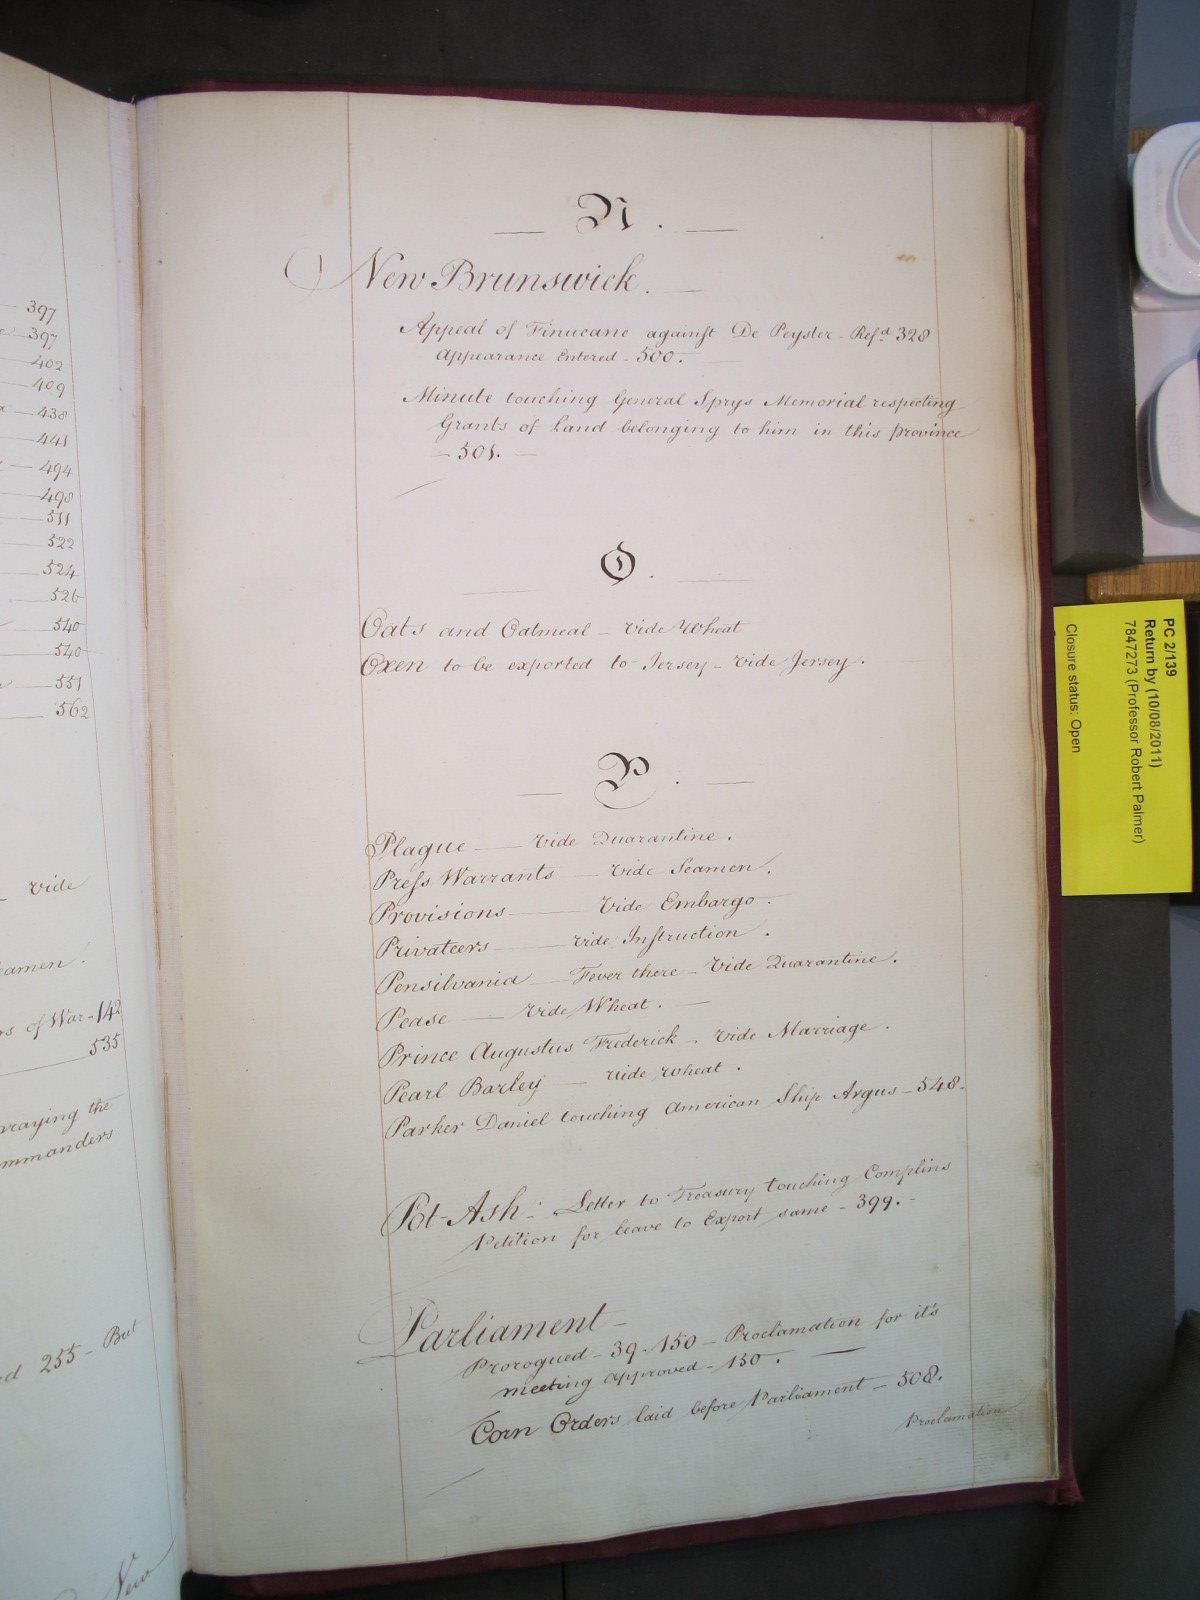 397
397
402
409
438
441
494
498
511
522
524
526
540
540
551
562
vide
eamen.
rs of War - 142
535
rraying the
mmanders
ed 255 - But
New
N.
New Brunswick.
Appeal of Finucane against De Peyster - Refd 328
Appearance Entered - 500.
Minute touching General Sprys Memorial respecting
Grants of Land belonging to him in this Province
- 501.
O.
Oats and Oatmeal - vide Wheat
Oxen to be exported to Jersey - vide Jersey.
P.
Plague - vide Quarantine.
Press Warrants - vide Seamen.
Provisions - vide Embargo.
Privateers - vide Instruction.
Pensilvania - Fever there - vide Quarantine.
Pease - vide Wheat.
Prince Augustus Frederick - vide Marriage.
Pearl Barley - vide wheat.
Parker Daniel touching American Ship Argus - 548.
Pot-Ash: Letter to Treasury touching Complins
Petition for leave to Export same - 399.
Parliament -
Prorogued - 39 - 150 - Proclamation for it's
meeting approved - 150.
Corn Orders laid before Parliament - 508.
Proclamation
PC 2/139
Return by (10/08/2011)
7847273 (Professor Robert Palmer)
Closure status: Open